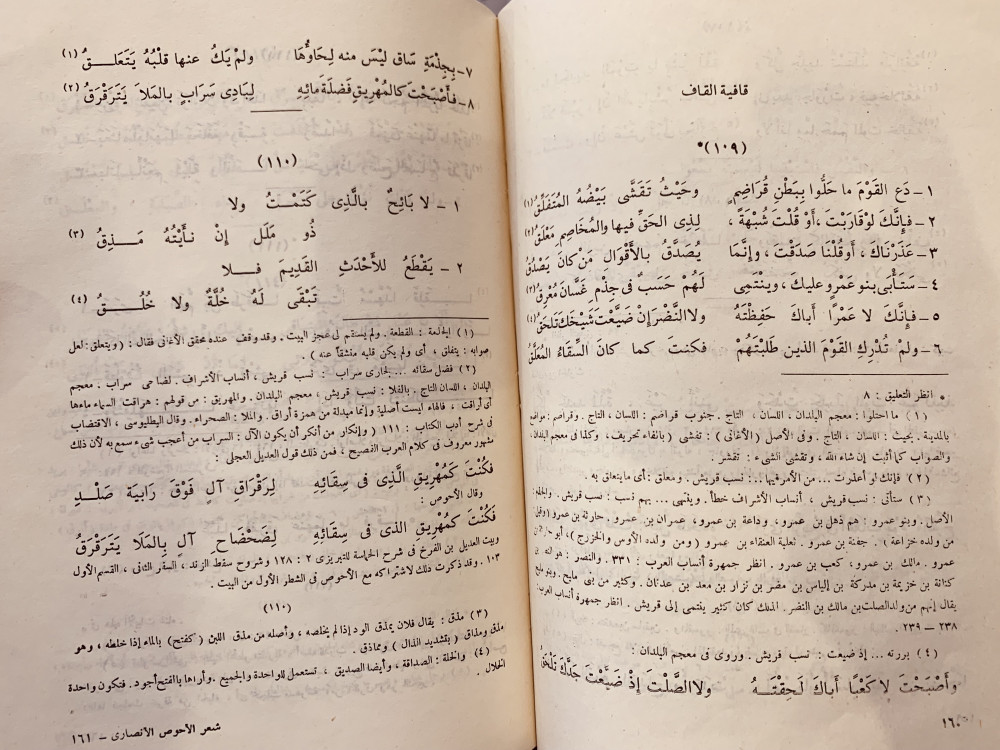 قافية القاف
(١٠٩)*
١ – دَعِ القَوْمَ ما حَلُّوا بِبَطْنِ قُرَاضِمٍ وحَيْثُ تَفَشَّى بَيْضُهُ المُتَفَلِّقُ (١)
٢ – فَإِنَّكَ لَوْ قَارَبْتَ ، أَوْ قُلْتَ شُبْهَةً ، لِذِى الحَقِّ فيها والمُخَاصِمِ مَعْلَقُ (٢)
٣ – عَذَرْنَاكَ ، أَوْ قُلْنَا صَدَقْتَ ، وإِنَّمَا يُصَدَّقُ بالأَقْوَالِ مَنْ كانَ يَصْدُقُ
٤ – سَتَأْبَى بنو عَمْرٍو عليكَ ، وينْتَمِى لَهُمْ حَسَبٌ فى جِذْمِ غَسَّانَ مُعْرِقُ (٣)
٥ – فَإِنَّكَ لا عَمْرًا أَباكَ حَفِظْتَهُ ولا النَّضْرَ إِنْ ضَيَّعْتَ شَيْخَكَ تَلْحَقُ (٤)
٦ – ولمْ تُدْرِكِ القَوْمَ الذينَ طَلَبْتَهُمْ فكنتَ كما كانَ السِّقَاءُ المُعَلَّقُ
* انظر التعليق : ٨
(١) ما احتلوا : معجم البلدان ، اللسان ، التاج . جنوب قراضم : اللسان ، التاج . وقراضم : مواضع
بالمدينة . بحيث : اللسان ، التاج . وفى الأصل (الأغانى) : تفشى (بالفاء تحريف ، وكذا فى معجم البلدان ،
والصواب كما أثبت إن شاء الله ، وتقشى الشىء : تقشر .
(٢) فإنك لو أعذرت ... من الأمر فيها .. : نسب قريش . ومعلق : أى ما يتعلق به .
(٣) ستأتى : نسب قريش ، أنساب الأشراف خطأ . وينتهى ... بهم نسب : نسب قريش . والجذم :
الأصل . وبنو عمرو : هم ذهل بن عمرو ، وداعة بن عمرو ، عمران بن عمرو . حارثة بن عمرو (وقيل
من ولده خزاعة) . جفنة بن عمرو . ثعلبة العنقاء بن عمرو (ومن ولده الأوس والخزرج) ، أبو حارثة بن
عمرو . مالك بن عمرو ، كعب بن عمرو . انظر جمهرة أنساب العرب : ٣٣١ . والنضر : هو النضر بن
كنانة بن خزيمة بن مدركة بن إلياس بن مضر بن نزار بن معد بن عدنان . وكثير من بنى مليح . وبنو مليح
يقال إنهم من ولد الصلت بن مالك بن النضر . لذلك كان كثير ينتمى إلى قريش . انظر جمهرة أنساب العرب :
٢٣٨ – ٢٣٩ .
(٤) بررته ... إذ ضيعت : نسب قريش . وروى فى معجم البلدان :
وأَصْبَحْتَ لا كَعْبًا أَباكَ لَحِقْتَـــهُ ولا الصَّلْتَ إِذْ ضَيَّعْتَ جَدَّكَ تَلْحَقُ
١٦٠
٧– بِجِذْمَةِ سَاقٍ لَيْسَ منه لِحَاؤُهَا ولمْ يَكُ عنها قَلْبُهُ يَتَعَلَّـــقُ (١)
٨– فَأَصْبَحْتَ كالمُهْرِيقِ فَضْلَةَ مائِهِ لِبَادِى سَرَابٍ بالمَلَا يَتَرَقْرَقُ (٢)
(١١٠)
١ – لا بَائِحٌ بالَّذِى كَتَمْتُ ولا
ذُو مَلَلٍ إِنْ نَأَيْتُهُ مَــذِقُ (٣)
٢ – يَقْطَعُ للأَحْدَثِ القَدِيمَ فــلا
تَبْقَى لَهُ خُلَّةٌ ولا خُلُـــقُ (٤)
(١) الجذمة : القطعة . ولم يستقم لى عجز البيت . وقد وقف عنده محقق الأغانى فقال : (ويتعلق : لعل
صوابه : يتفلق ، أى ولم يكن قلبه منشقاً عنه) .
(٢) فضل سقائه ... لجارى سراب : نسب قريش ، أنساب الأشراف . لضاحى سراب . معجم
البلدان ، اللسان التاج . بالفلا : نسب قريش ، معجم البلدان . والمهريق : من قولهم : هراقت السماء ماءها
أى أراقت ، فالهاء ليست أصلية وإنما مبدلة من همزة أراق . والملا : الصحراء . وقال البطليوسى ، الاقتضاب
فى شرح أدب الكتاب : ١١١ (وإنكار من أنكر أن يكون الآل : السراب من أعجب شىء سمع به لأن ذلك
مشهور معروف فى كلام العرب الفصيح ، فمن ذلك قول العديل العجلى :
فَكُنْتَ كَمُهْرِيقِ الَّذِى فى سِقَائِهِ لِرَقْرَاقِ آلٍ فَوْقَ رَابِيَةٍ صَلْــدِ
وقال الأحوص :
فَكُنْتَ كَمُهْرِيقِ الذى فى سِقَائِهِ لِضَحْضَاحِ آلٍ بالمَلَا يَتَرَقْرَقُ
وبيت العديل بن الفرخ فى شرح الحماسة للتبريزى ٢ : ١٢٨ وشروح سقط الزند ، السفر الثانى ، القسم الأول
١٠٣ . وقد ذكرت ذلك لاشتراكه مع الأحوص فى الشطر الأول من البيت .
(١١٠)
(٣) مذق : يقال فلان يمذق الود إذا لم يخلصه ، وأصله من مذق اللبن (كفتح) بالماء إذا خلطه ، وهو
مذق ومذاق (بتشديد الذال) ومماذق .
(٤) والخلة : الصداقة ، وأيضا الصديق ، تستعمل للواحدة والجميع . وأراها بالفتح أجود . فتكون واحدة
الخلال .
شعر الأحوص الأنصارى – ١٦١